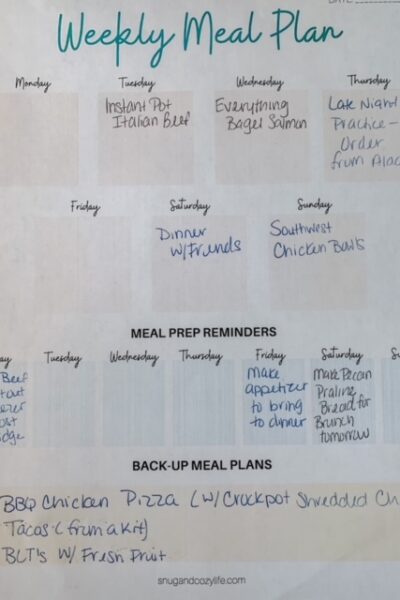 DATE
Weekly Meal Plan
Monday Tuesday Wednesday Thursday
Instant Pot Everything Late Night
Italian Beef Bagel Salmon Practice -
Order
from
Friday Saturday Sunday
Dinner Southwest
w/Friends Chicken Bowls
MEAL PREP REMINDERS
Tuesday Wednesday Thursday Friday Saturday
Beef Make Make Pecan
out appetizer Praline
to bring Bread for
to dinner Brunch
tomorrow
BACK-UP MEAL PLANS
BBQ Chicken Pizza (w/Crockpot Shredded Ch
Tacos (from a kit)
BLT's w/ Fresh Fruit
snugandcozylife.com